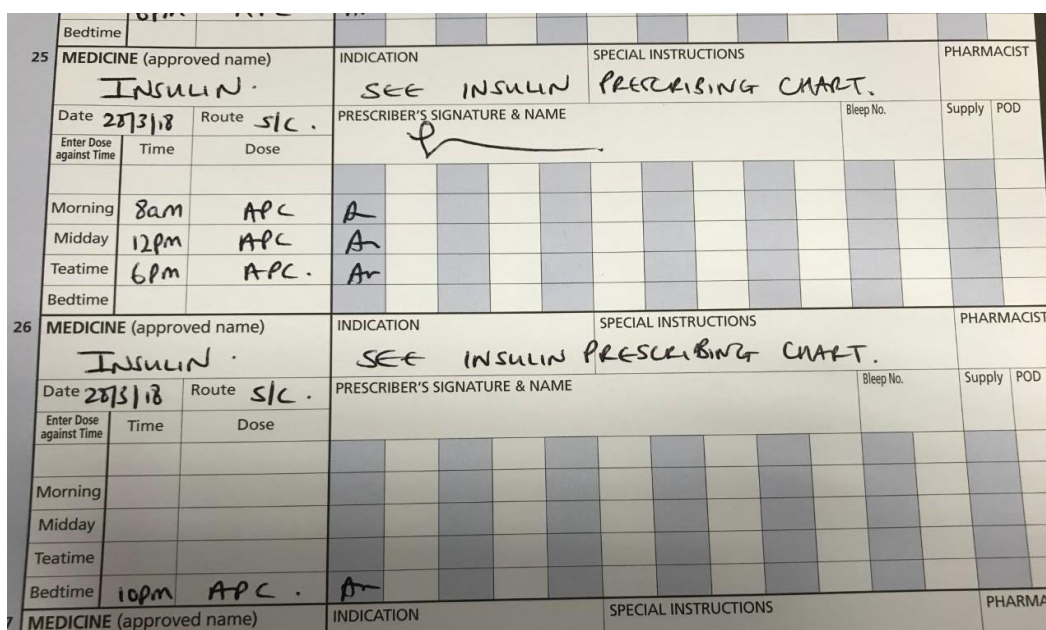 Bedtime
25 MEDICINE (approved name) INDICATION SPECIAL INSTRUCTIONS PHARMACIST
INSULIN. SEE INSULIN PRESCRIBING CHART.
Date 28/3/18 Route S/C. PRESCRIBER'S SIGNATURE & NAME Bleep No. Supply POD
Enter Dose against Time Time Dose
Morning 8am APC
Midday 12pm APC
Teatime 6pm APC.
Bedtime
26 MEDICINE (approved name) INDICATION SPECIAL INSTRUCTIONS PHARMACIST
INSULIN. SEE INSULIN PRESCRIBING CHART.
Date 28/3/18 Route S/C. PRESCRIBER'S SIGNATURE & NAME Bleep No. Supply POD
Enter Dose against Time Time Dose
Morning
Midday
Teatime
Bedtime 10pm APC.
MEDICINE (approved name) INDICATION SPECIAL INSTRUCTIONS PHARMA